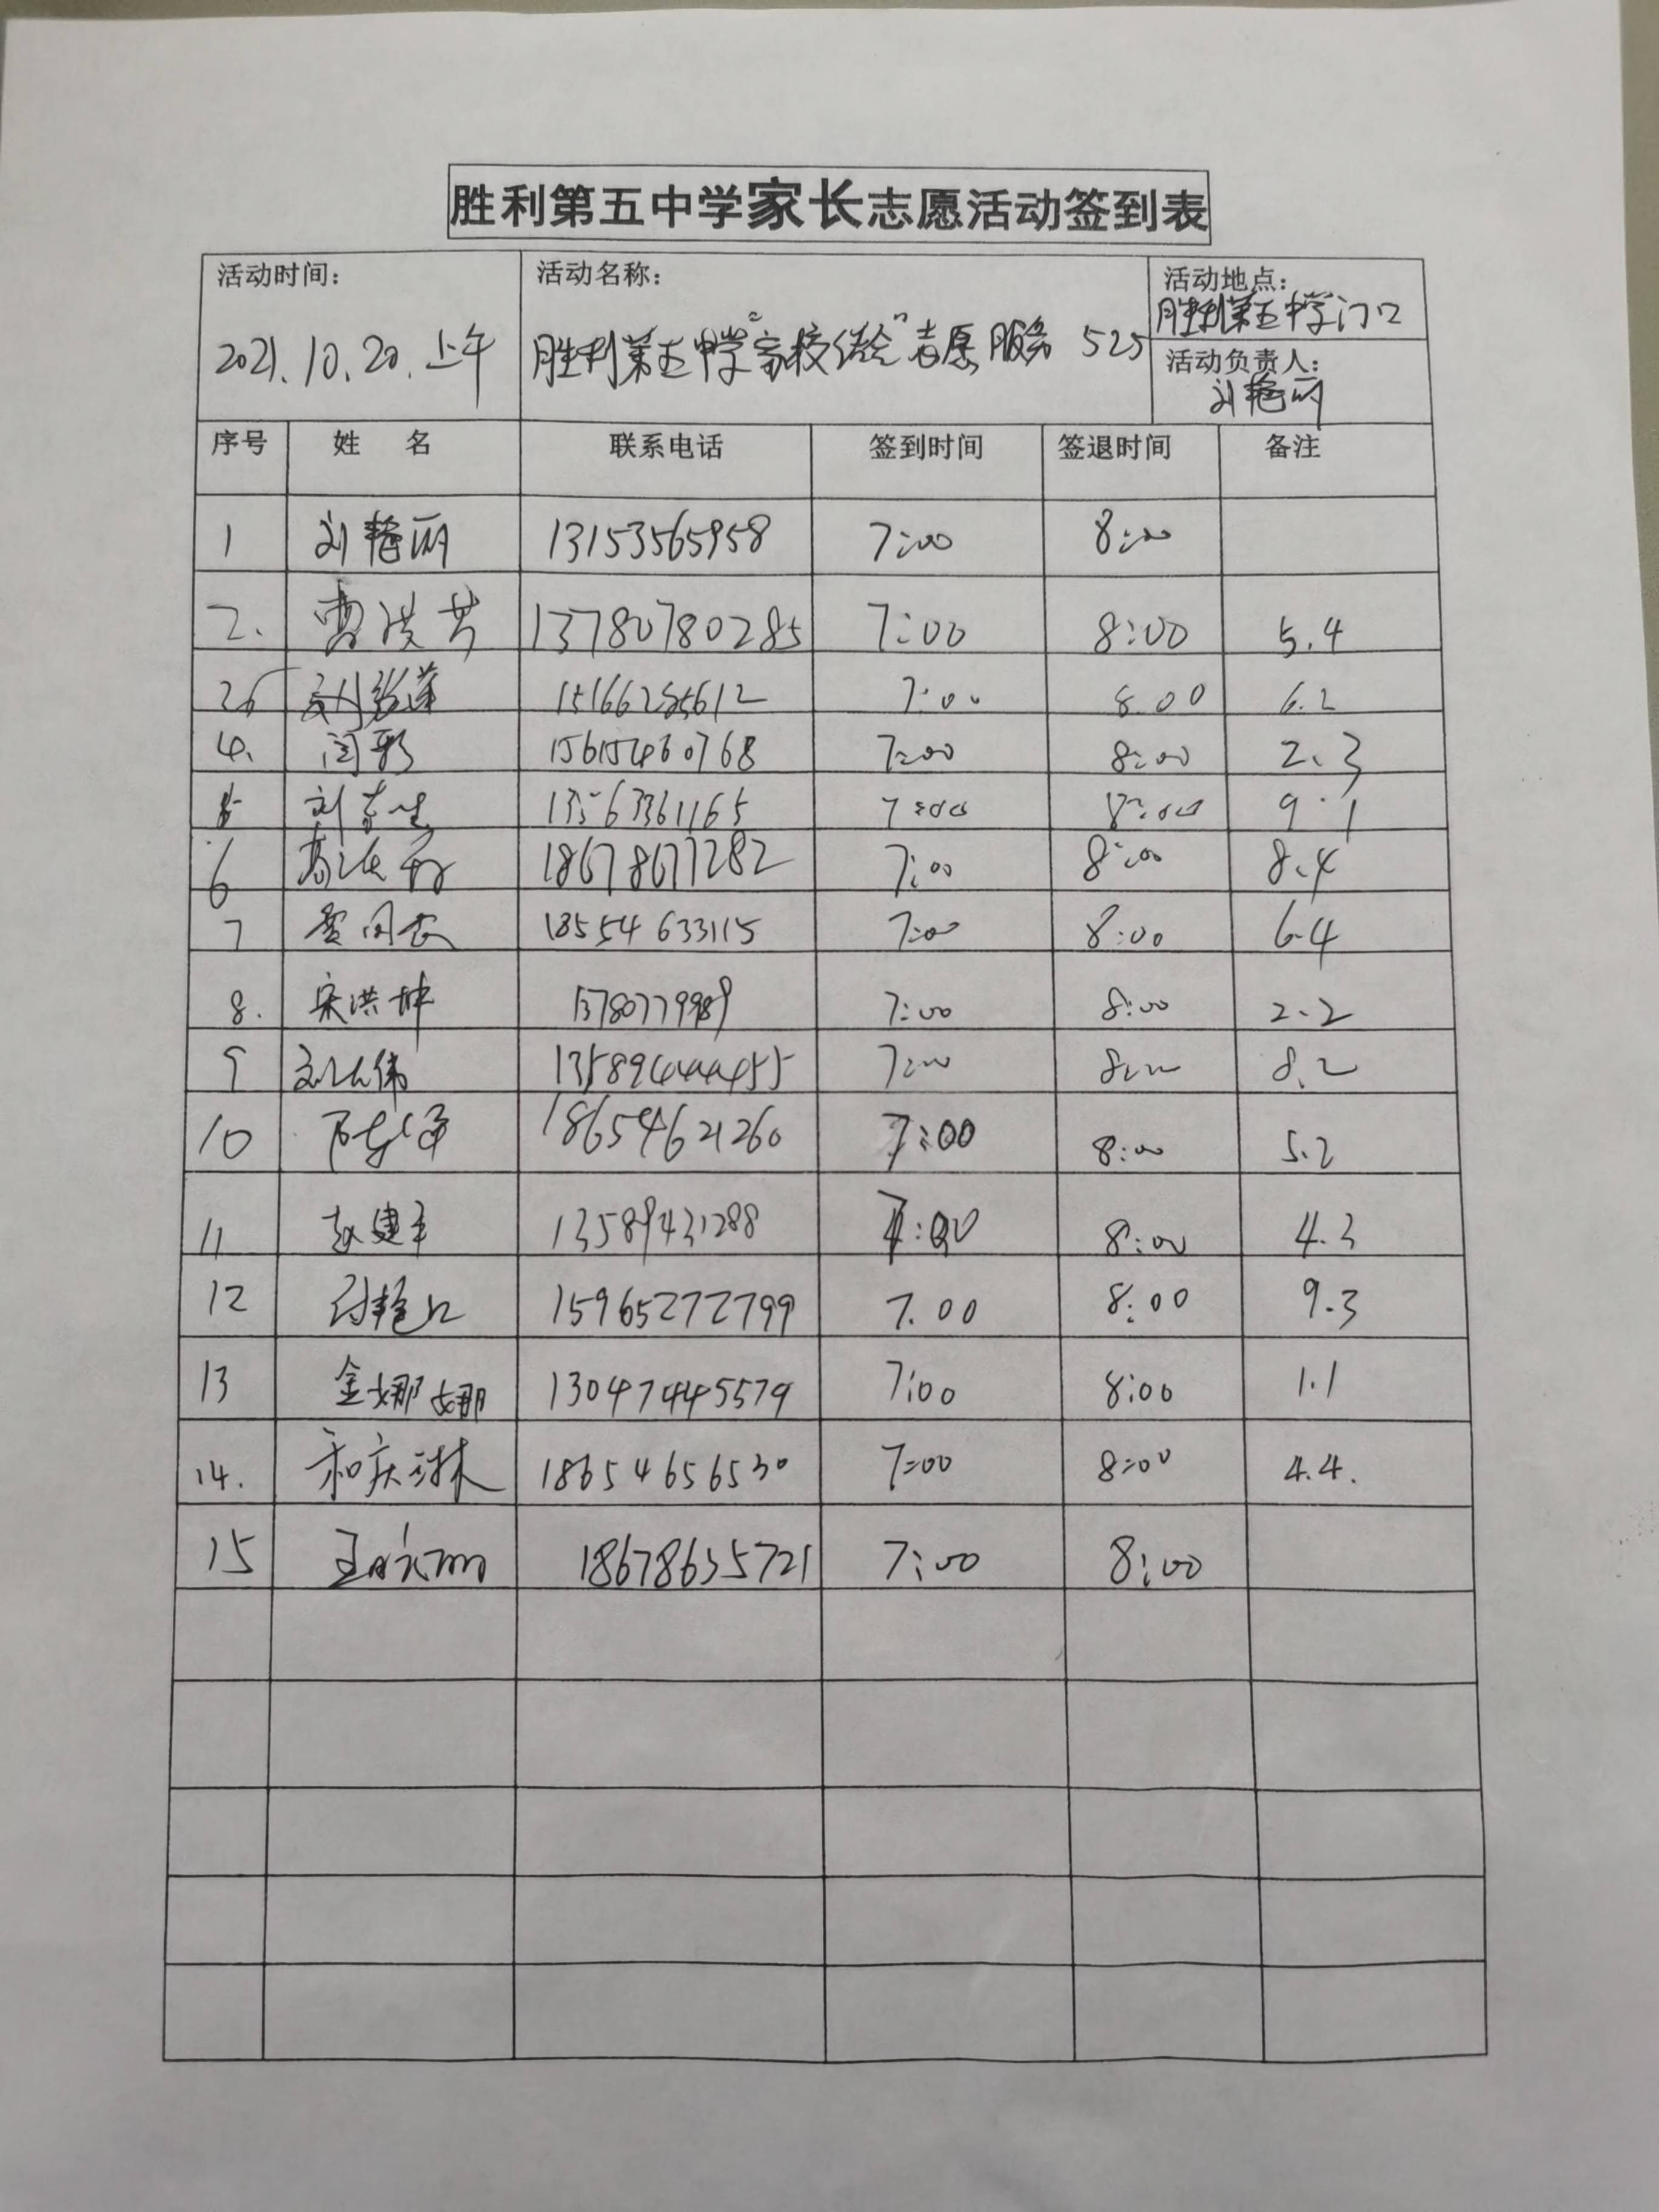 胜利第五中学家长志愿活动签到表
活动时间: 活动名称: 活动地点:
胜利第五中学门口
2021.10.20.上午 胜利第五中学"家校结合"志愿服务 525
活动负责人:
刘艳丽
序号 姓 名 联系电话 签到时间 签退时间 备注
1 刘艳丽 13153565958 7:00 8:00
2. 曹洪芳 13780780285 7:00 8:00 5.4
7:00 8.00 6.2
4. 闫彩 15615460768 7:00 8:00 2.3
5 刘春生 13563361165 7:00 8:00 9.1
6 18678677282 7:00 8:00 8.4
7 18554633115 7:00 8:00 6.4
8. 宋洪坤 7:00 8:00 2.2
9 13589444455 7:00 8:00 8.2
10 18654621260 7:00 8:00 5.2
11 赵建丰 13589431288 7:00 8:00 4.3
12 15965272799 7.00 8:00 9.3
13 金娜娜 13047445579 7:00 8:00 1.1
14. 和庆琳 18654656530 7:00 8:00 4.4.
15 18678635721 7:00 8:00